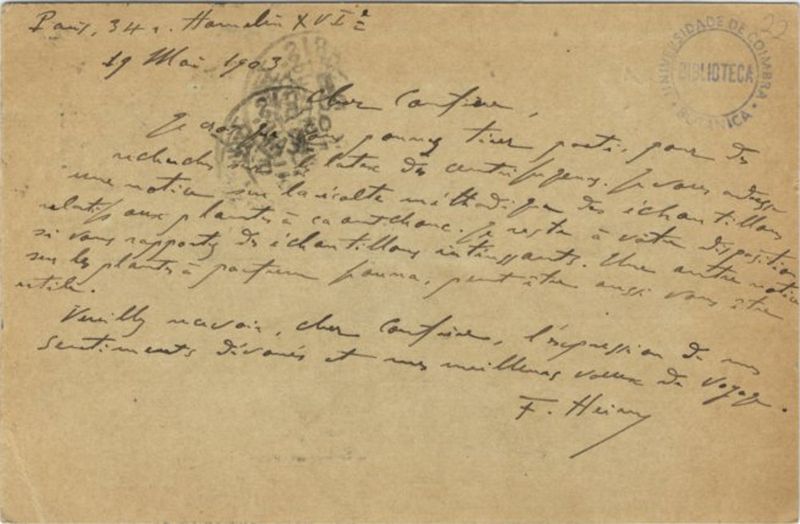 Paris, 34 r. Hamelin XVIe
19 Mai 1903
22
UNIVERSIDADE DE COIMBRA
BIBLIOTECA
BOTANICA
Cher Confrère,
Je crois que vous pourrez tirer parti, pour des
recherches sur le latex des centrifugeurs. Je vous adresse
une notice sur la récolte méthodique des échantillons
relatifs aux plantes à caoutchouc. Je reste à votre disposition
si vous rapportez des échantillons intéressants. Une autre notice
sur les plantes à parfum pourra, peut être aussi vous être
utile.
Veuillez recevoir, cher Confrère, l'expression de mes
sentiments dévoués et mes meilleurs voeux de voyage.
F. Heim